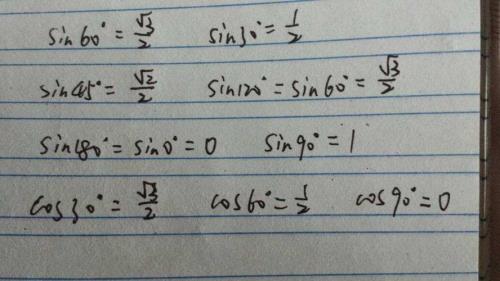 sin60° = √3/2 sin30° = 1/2
sin45° = √2/2 sin120° = sin60° = √3/2
sin180° = sin0° = 0 sin90° = 1
cos30° = √3/2 cos60° = 1/2 cos90° = 0